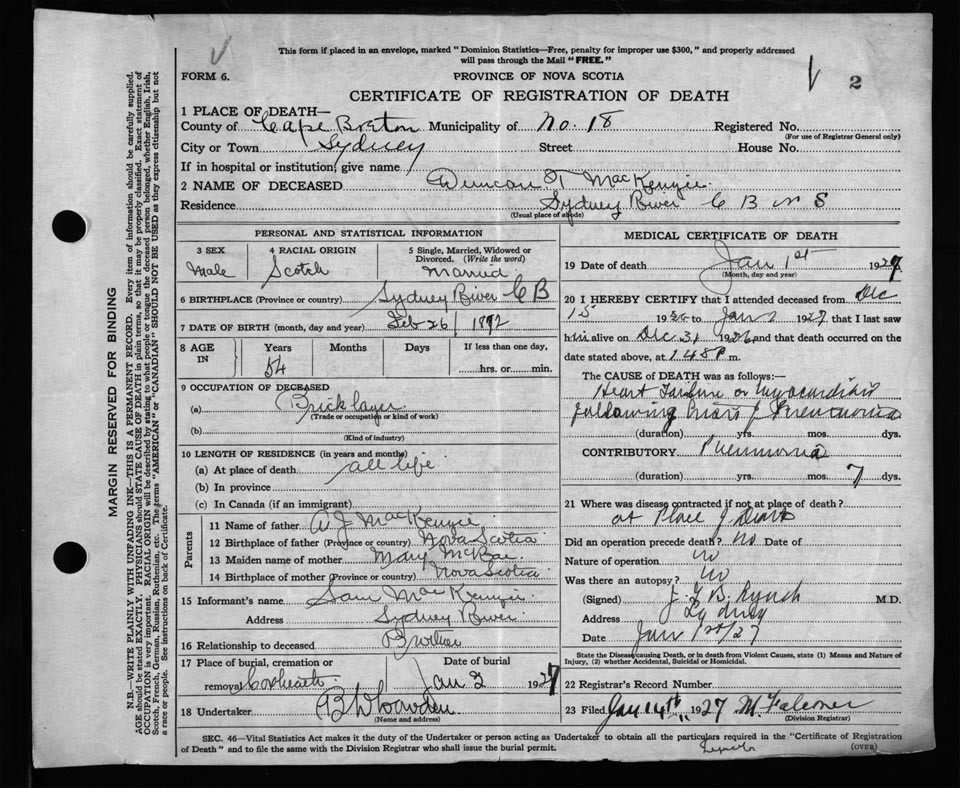 This form if placed in an envelope, marked "Dominion Statistics—Free, penalty for improper use $300," and properly addressed
will pass through the Mail "FREE."
FORM 6.
PROVINCE OF NOVA SCOTIA
2
CERTIFICATE OF REGISTRATION OF DEATH
1 PLACE OF DEATH—
County of Cape Breton Municipality of No. 18 Registered No.
(For use of Registrar General only)
City or Town Sydney Street House No.
If in hospital or institution, give name
2 NAME OF DECEASED Duncan T MacKenzie
Residence Sydney River C B N S
(Usual place of abode)
PERSONAL AND STATISTICAL INFORMATION
3 SEX 4 RACIAL ORIGIN 5 Single, Married, Widowed or Divorced. (Write the word)
Male Scotch Married
6 BIRTHPLACE (Province or country) Sydney River C B
7 DATE OF BIRTH (month, day and year) Feb 26 / 1872
8 AGE IN Years Months Days If less than one day,
54 hrs. or min.
9 OCCUPATION OF DECEASED
(a) Bricklayer
(Trade or occupation or kind of work)
(b)
(Kind of industry)
10 LENGTH OF RESIDENCE (in years and months)
(a) At place of death all life
(b) In province
(c) In Canada (if an immigrant)
Parents
11 Name of father A J MacKenzie
12 Birthplace of father (Province or country) Nova Scotia
13 Maiden name of mother Mary McRae
14 Birthplace of mother (Province or country) Nova Scotia
15 Informant's name Sam MacKenzie
Address Sydney River
16 Relationship to deceased Brother
17 Place of burial, cremation or removal Coxheath Date of burial Jan 2 1927
18 Undertaker
(Name and address)
MEDICAL CERTIFICATE OF DEATH
19 Date of death Jan 1st 1927
(Month, day and year)
20 I HEREBY CERTIFY that I attended deceased from Dec
15 1926 to Jan 1 1927 that I last saw
him alive on Dec 31 1926 and that death occurred on the
date stated above, at 1 45 P m.
The CAUSE of DEATH was as follows:—
Heart Failure or Myocarditis
following Crisis of Pneumonia
(duration) yrs. mos. dys.
CONTRIBUTORY Pneumonia
(duration) yrs. mos. 7 dys.
21 Where was disease contracted if not at place of death?
at Place of Death
Did an operation precede death? No Date of
Nature of operation no
Was there an autopsy? no
(Signed) J. G. B. Lynch M.D.
Address Sydney
Date Jan 1st/27
State the Disease causing Death, or in death from Violent Causes, state (1) Means and Nature of
Injury, (2) whether Accidental, Suicidal or Homicidal.
22 Registrar's Record Number
23 Filed Jan 14th 1927 M Falconer
(Division Registrar)
SEC. 46—Vital Statistics Act makes it the duty of the Undertaker or person acting as Undertaker to obtain all the particulars required in the "Certificate of Registration
of Death" and to file the same with the Division Registrar who shall issue the burial permit.
(OVER)
MARGIN RESERVED FOR BINDING
N.B.—WRITE PLAINLY WITH UNFADING INK—THIS IS A PERMANENT RECORD. Every item of information should be carefully supplied.
AGE should be stated EXACTLY. PHYSICIANS should STATE CAUSE OF DEATH in plain terms, so that it may be properly classified. Exact statement of
OCCUPATION is very important. RACIAL ORIGIN will be described by stating to what people or tongue the deceased person belonged, whether English, Irish,
Scotch, French, German, Russian, Ruthenian, etc. The terms "AMERICAN" or "CANADIAN" SHOULD NOT BE USED as they express citizenship but not
a race or people. See instructions on back of Certificate.